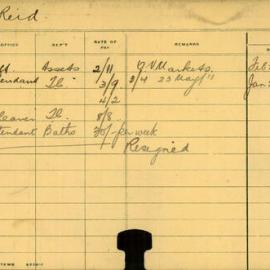 Reid.
OFFICE DEP'T RATE OF PAY REMARKS
Assets 2/11 Q V Markets. Feb
tendant Tb. 3/9 3/4 23 May/11 Jan
4/2
Cleaner Tb. 8/8
tendant Baths 30/- per week
Resigned
ITEMS